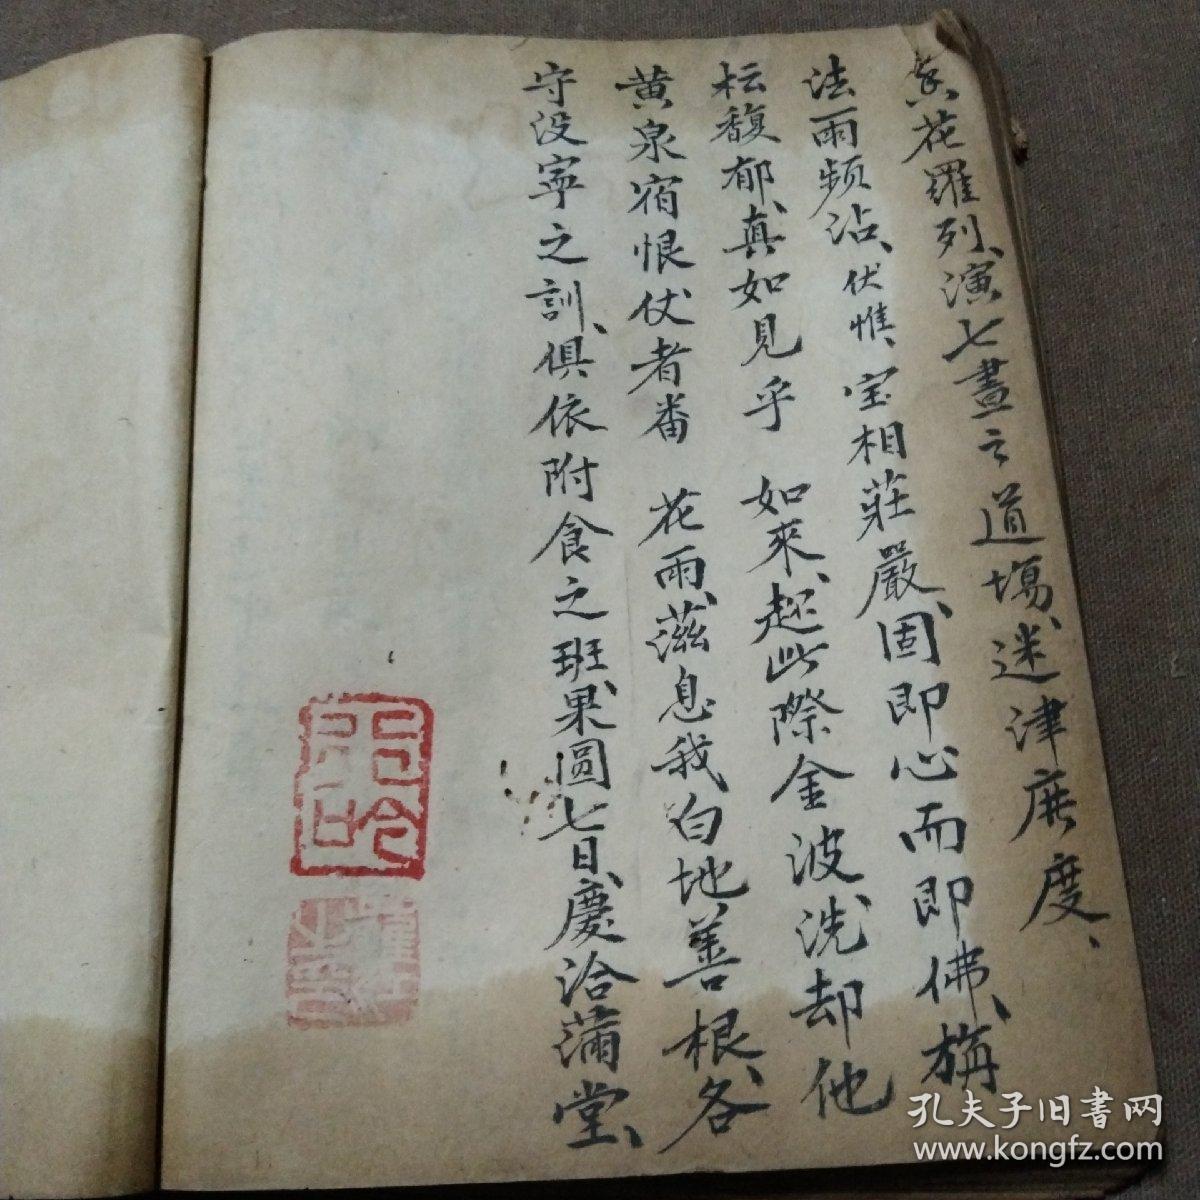 花羅列、演七晝之道場、迷津庶度、
法雨頻沾、伏惟、宝相莊嚴、固即心而即佛、栴
枟馥郁、真如見乎 如來、趁此際金波、洗却他
黄泉宿恨仗者番 花雨、滋息我白地善根、各
守没寧之訓、俱依附食之班、果圓七日、慶洽蒲堂、
孔夫子旧書网
www.kongfz.com